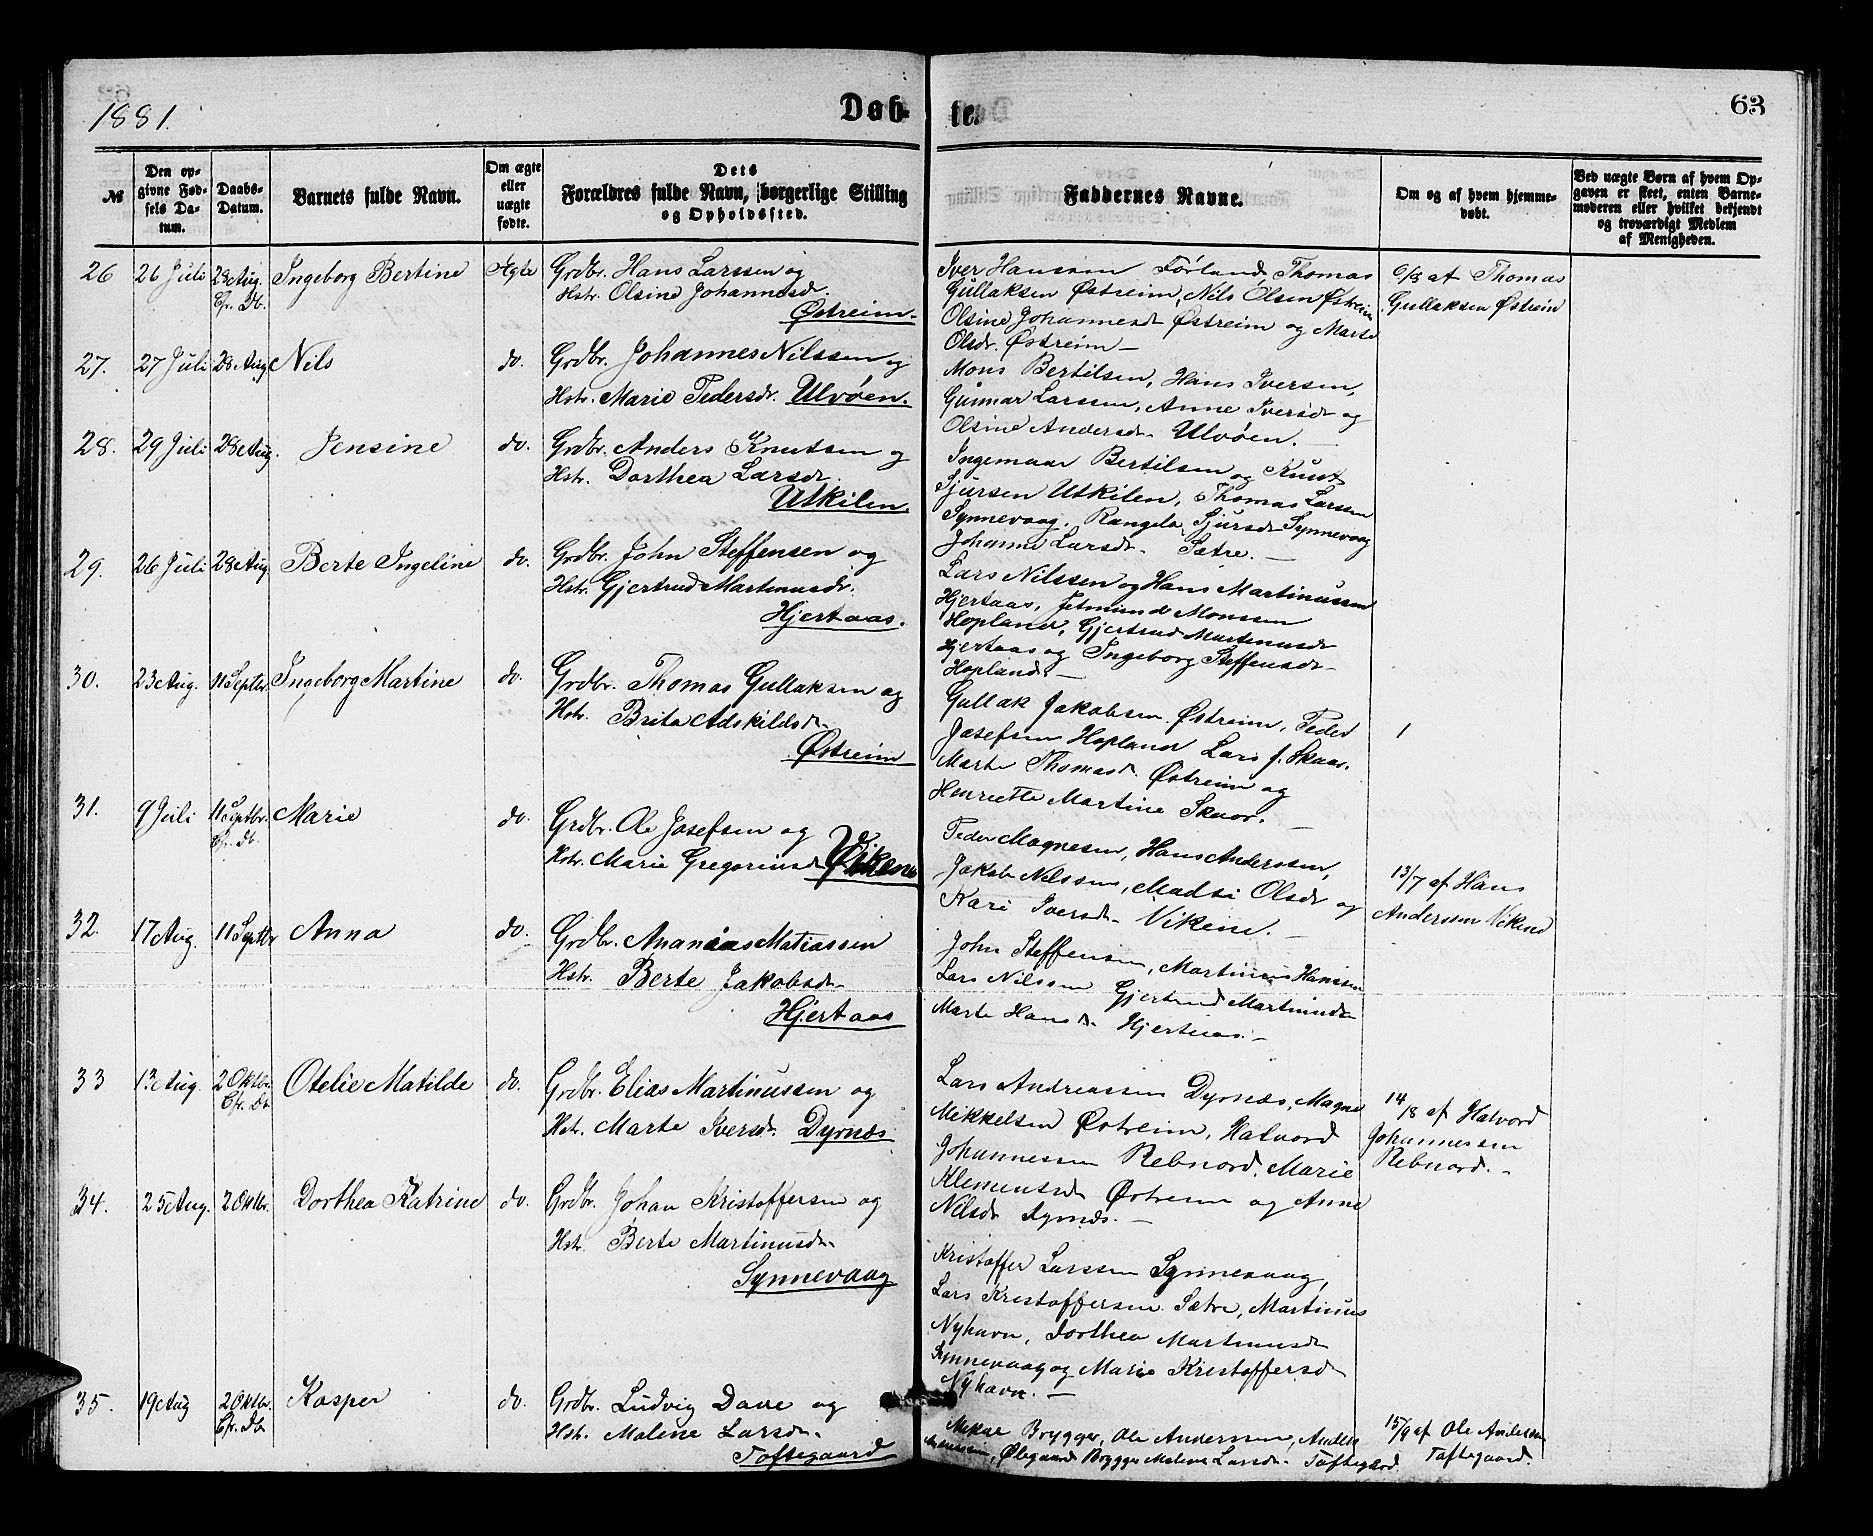 1881.
Døb-
te.
63
№
Den op-
givne Fød-
sels Da-
tum.
Daabs-
Datum.
Barnets fulde Navn.
Om ægte
eller
uægte
født.
Dets
Forældres fulde Navn, borgerlige Stilling
og Opholdssted.
Faddernes Navne.
Om og af hvem hjemme-
døbt.
Ved uægte Børn af hvem Op-
gaven er skeet, enten Barne-
moderen eller hvilket bekjendt
og troværdigt Medlem
af Menigheden.
26 26 Juli 28 Aug. Ingeborg Bertine Ægte Grdbr. Hans Larssen og
Cfr. Db. Hstr. Olsine Johannesdr.
Østreim.
Iver Hanssen Førland, Thomas
Gullaksen Østreim, Nils Olsen Østreim
Olsine Johannesdr Østreim og Marte
Olsdr. Østreim —
6/8 af Thomas
Gullaksen Østreim
27. 27 Juli 28 Aug Nils do. Grdbr. Johannes Nilssen og
Hstr. Marie Pedersdr. Ulvøen.
Mons Bertilsen, Hans Iversen,
Gunnar Larssen, Anne Iversdr og
Olsine Andersdr. Ulvøen. —
28. 29 Juli 28 Aug. Jensine do. Grdbr. Anders Knutsen og
Hstr. Dorthea Larsdr.
Utkilen.
Ingemaar Bertilsen og Knut
Sjursen Utkilen, Thomas Larssen
Synnevaag, Rangela Sjursdr Synnevaag
Johanne Larsdr. Sætre. —
29. 26 Juli 28 Aug. Berte Ingeline do. Grdbr. John Steffensen og
Hstr. Gjertrud Martinusdr.
Hjertaas.
Lars Nilssen og Hans Martinussen
Hjertaas, Jetmund Monssen
Hopland, Gjertrud Martinusdr
Hjertaas og Ingeborg Steffensdr
Hopland. —
30. 23 Aug. 11 Septbr. Ingeborg Martine do. Grdbr. Thomas Gullaksen og
Hstr. Brita Adskildsdr.
Østreim
Gullak Jakobsen Østreim, Peder
Josefsen Hopland Lars J. Skaar.
Marte Thomasdr. Østreim og
Henriette Martine Skaar. —
31. 9 Juli 11 Septbr. Marie do. Grdbr. Ole Josefsen og
Cfr. Db. Hstr. Marie Gregoriusdr Vikene
Peder Magnesen, Hans Anderssen,
Jakob Nilssen, Madsi Olsdr og
Kari Iversdr. Vikene. —
13/7 af Hans
Anderssen Vikene
32. 17 Aug. 11 Septbr Anna do. Grdbr. Ananias Matiassen
Hstr. Berte Jakobsdr.
Hjertaas
John Steffensen, Martinus Hanssen
Lars Nilssen Gjertrud Martinusdr
Marte Hansdr. Hjertaas. —
33 13 Aug. 2 Oktbr. Otelie Matilde do. Grdbr. Elias Martinussen og
Cfr. Db Hstr. Marte Iversdr. Dyrnæs
Lars Andreassen Dyrnæs, Magne
Mikkelsen Østreim, Halvord
Johannessen Rebnord, Marie
Klemensdr Østreim og Anne
Nilsdr Dyrnæs. —
14/8 af Halvord
Johannessen
Rebnord. —
34. 25 Aug. 2 Oktbr. Dorthea Katrine do. Grdbr. Johan Kristoffersen og
Hstr. Berte Martinusdr.
Synnevaag
Kristoffer Larssen Synnevaag,
Lars Kristoffersen Sætre, Martinus
Nyhavn, Dorthea Martinusdr
Synnevaag og Marie Kristoffersdr
Nyhavn. —
35. 19 Aug 2 Oktbr. Kasper do. Grdbr. Ludvig Dave og
Cfr. Db Hstr. Malene Larsdr.
Toftegaard
Brygger, Ole Anderssen, Anders
Ølegaard Brygger Malene Larsdr. Toftegard.
15/9 af Ole Andersen
Toftegaard.